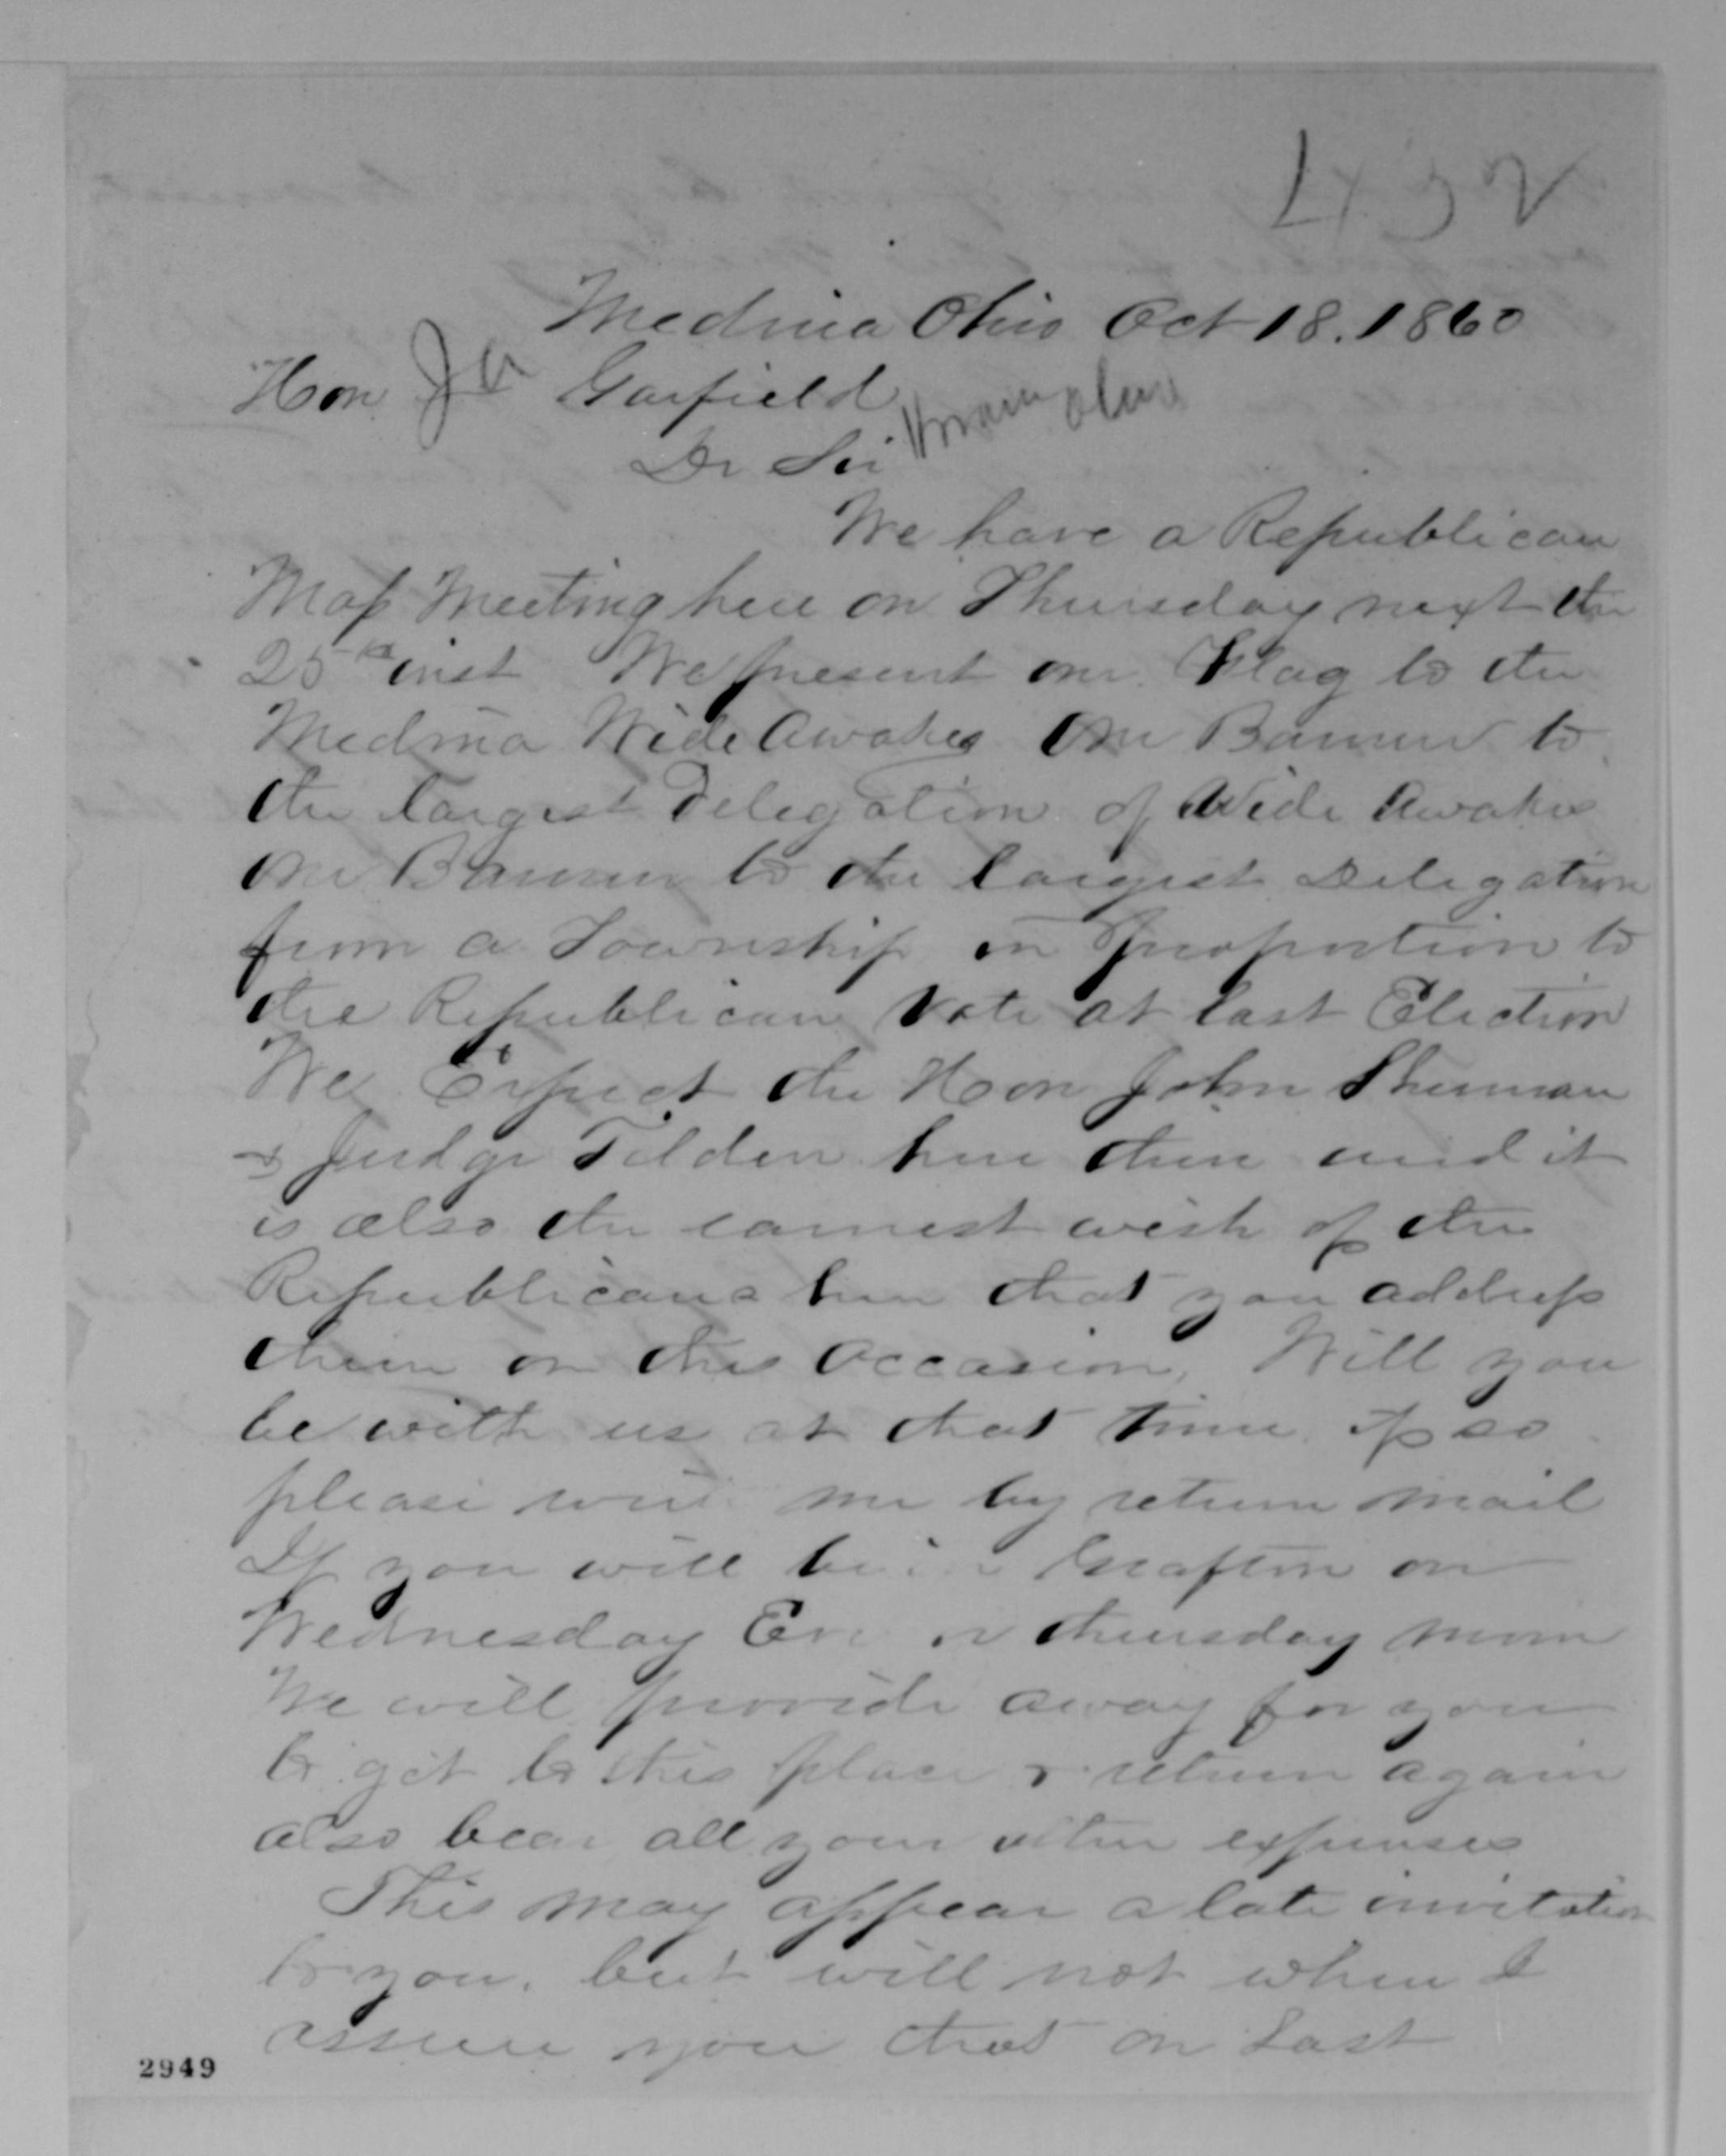 432
Medina Ohio Oct 18. 1860
Hon Ja Garfield
Dr Sir
We have a Republican
Mass Meeting here on Thursday next the
25th inst We present one Flag to the
Medina Wide Awakes One Banner to
the largest Delegation of Wide Awakes
One Banner to the largest Delegation
from a Township in proportion to
the Republican Vote at last Election
We Expect the Hon John Sherman
& Judge Tilden here then and it
is also the earnest wish of the
Republicans here that you address
them on this Occasion, Will you
be with us at that time if so
please write me by return mail
If you will be in Grafton on
Wednesday Eve or thursday morn
We will provide away for you
to get to this place & return again
also bear all your other expenses
This may appear a late invitation
to you. but will not when I
assure you that on Last
2949